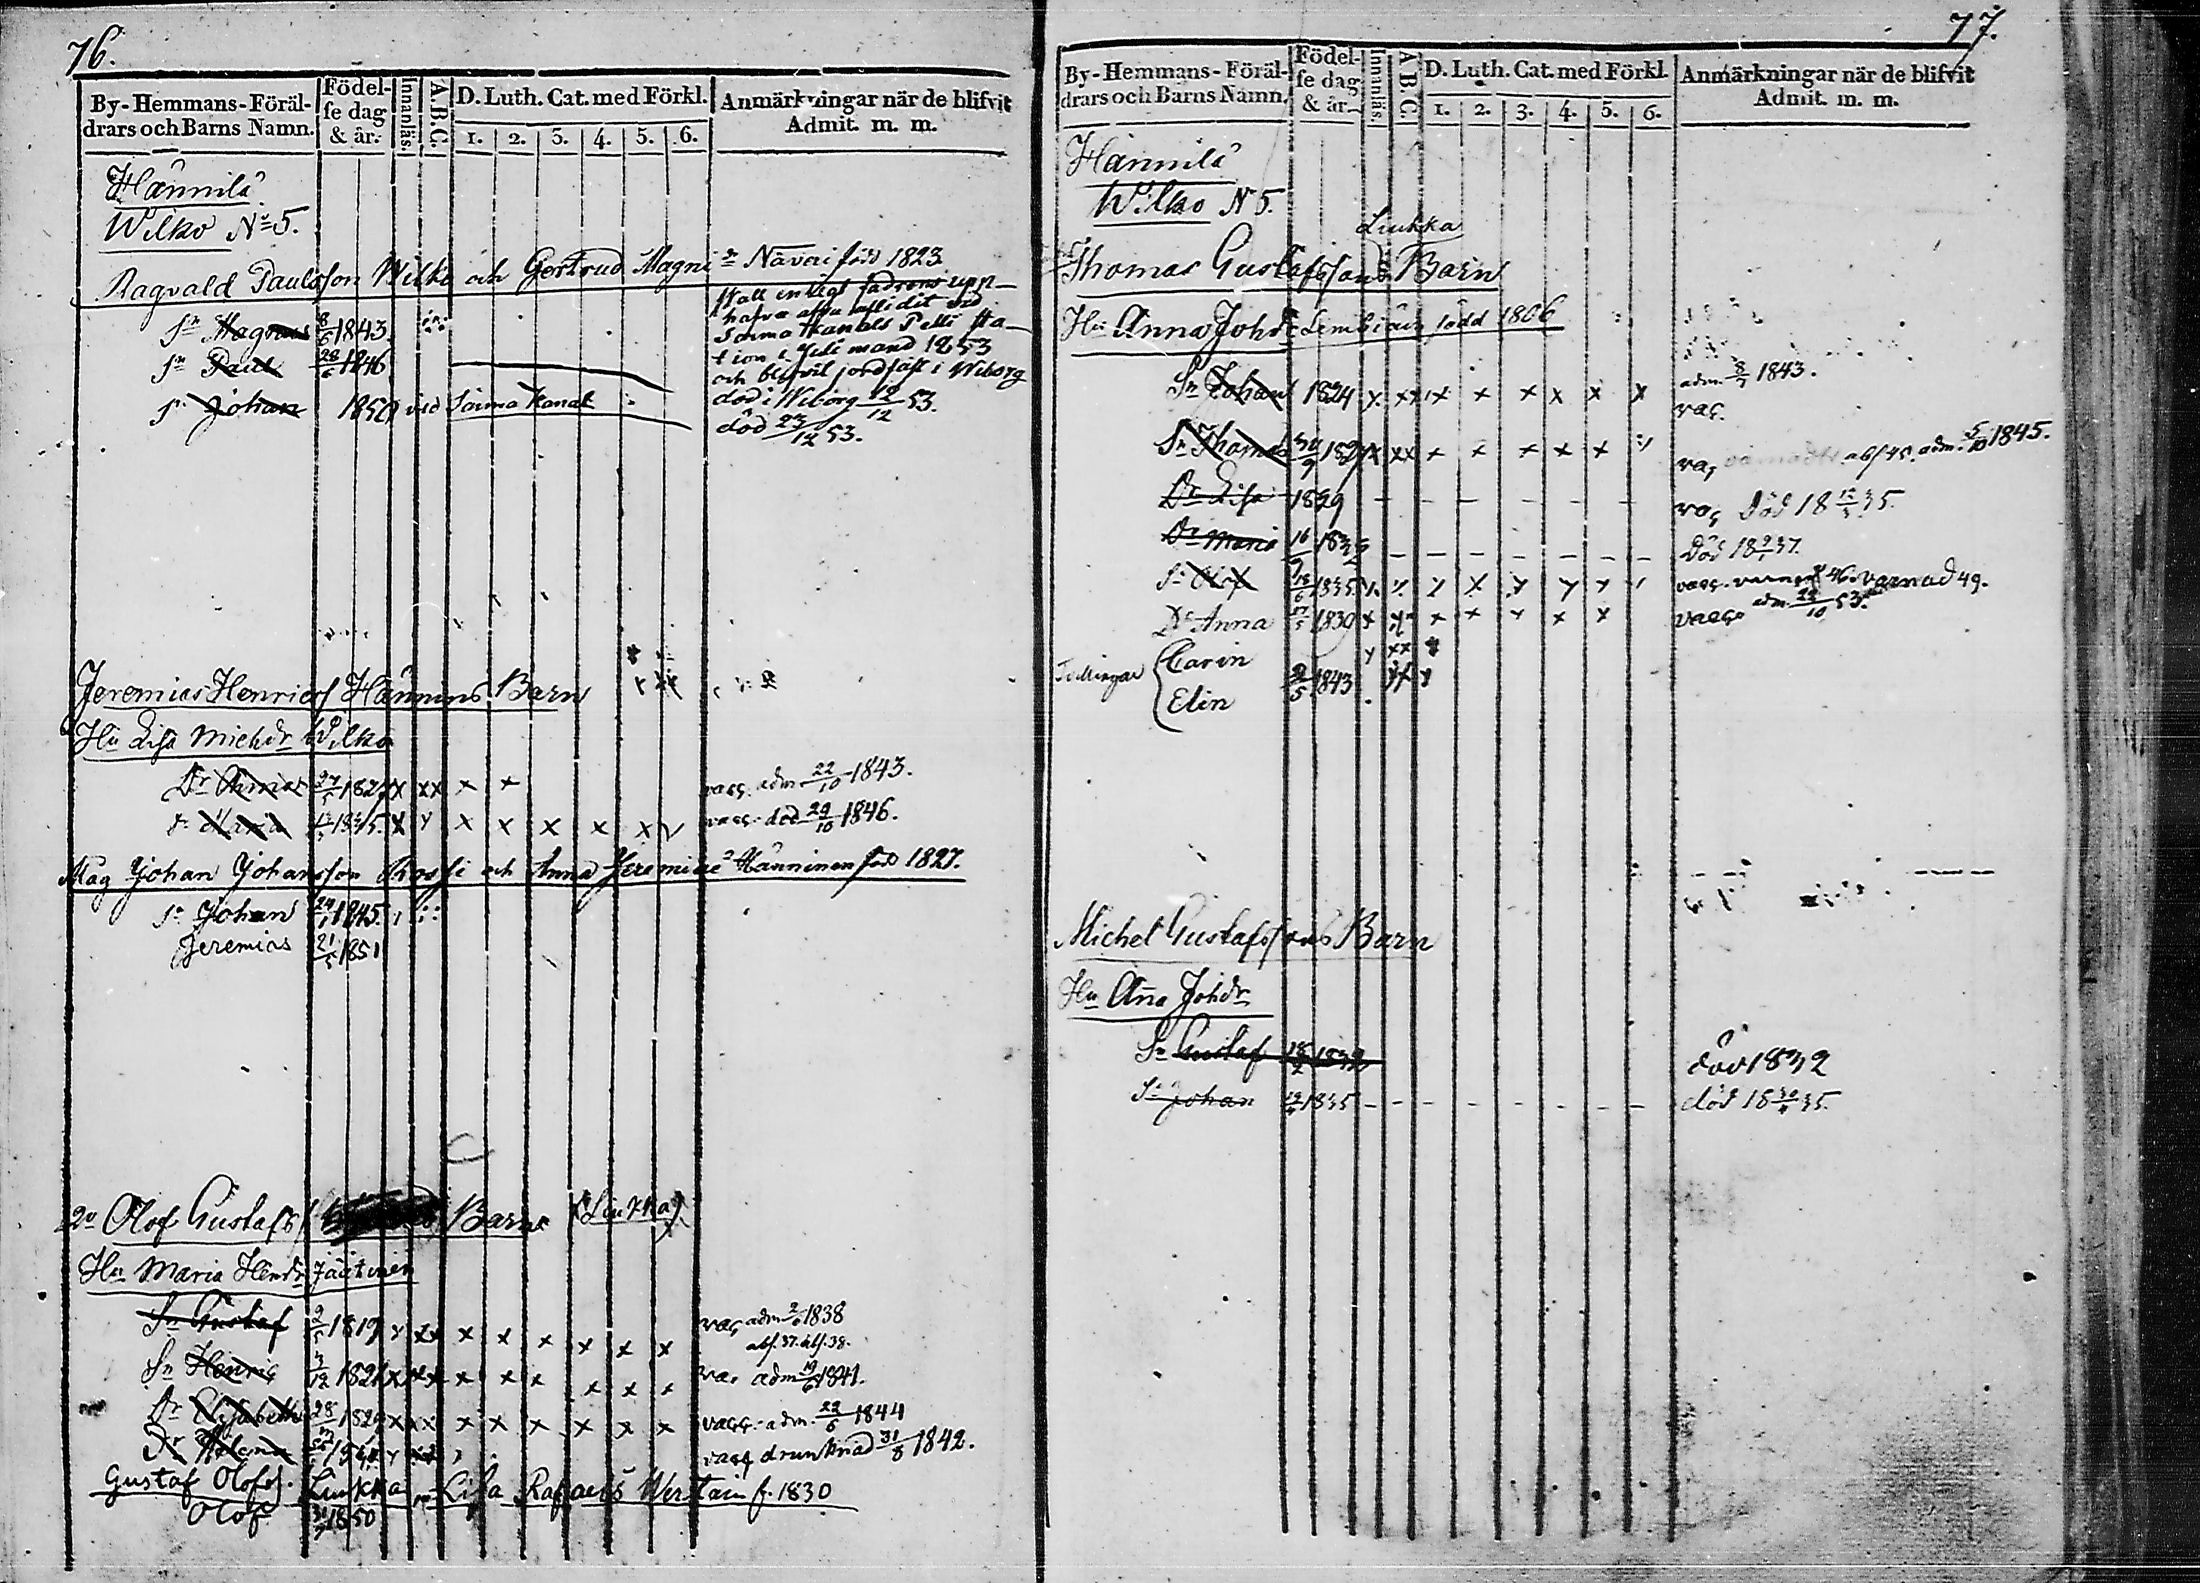 76.
By-Hemmans-Föräl-
drars och Barns Namn.
Födel-
se dag
& år.
Innanläs.
A.B.C.
D. Luth. Cat. med Förkl.
1. 2. 3. 4. 5. 6.
Anmärkningar när de blifvit
Admit. m. m.
Hännilä
Wilko No 5.
Ragvald Paulsson Wilko och Gertrud Magni Näveri född 1823
Sn Magnus 8/6 1843.
Sn Paul 28/6 1846
Sn Johan 1850 vid Saima Kanal
Skall enligt fadrens upp-
Saima Kanals Pelli sta-
tion i Juli månad 1853
och blifvit jordfäst i Wiborg
död i Wiborg 12/12 53.
död 23/12 53.
Jeremias Henrics Hännins Barn
Hu Lisa Michdr Wilko
Dr Annas 1827 x xx x x vacc. adm. 22/10 1843.
Dr Maria 1835. x x x x x x x vacc. död 29/10 1846.
Mag Johan Johansson Rossi och Anna Jeremiae Hänninen född 1827.
Sn Johan 1845.
Jeremias 21/5 1851
2o Olof Gustafs Barn (Liukka)
Hu Maria Hendr Jäätinen
Sn Gustaf 9/5 1819 x xx x x x x x x vac adm 2/6 1838
abs. 37. abs. 38.
Sn Henric 1821 x xx x x x x x x adm 19/6 1841.
Dr Elisabeth 28 1829 x xx x x x x x x vacc. adm. 22/6 1844
Dr Helena vacc drunknad 31/8 1842.
Gustaf Olofs. Liukka Lisa Rafaels Wertain f. 1830
Olof 31/7 1850
77.
By-Hemmans-Föräl-
drars och Barns Namn.
Födel-
se dag
& år.
Innanläs.
A B C.
D. Luth. Cat. med Förkl.
1. 2. 3. 4. 5. 6.
Anmärkningar när de blifvit
Admit. m. m.
Hännilä
Wilko N 5.
Liukka
Thomas Gustafssons Barn
Hu Anna Johdr Lembiäin född 1806
Sn Johan 1824 x xx x x x x x x adm. 8/7 1843.
vac.
Sn Thomas 1827 x xx x x x x x abs 45. adm. 5/10 1845.
Dr Lisa 1829 - - - - - - vac död 18 35.
Dr Maria 16 1832 - - - - - - - död 18 37.
Sn Olof 18/6 1835 x x x x x x x vacc. varnad 46. varnad 49.
Dr Anna 1839 x x x x x x x vacc adm. 23/10 53.
Tvillingar Carin
Elin 2/5 1843
Michel Gustafssons Barn
Hu Anna Johdr
Sn Gustaf 18/2 1832 död 1832
Sn Johan 1835 - - - - - - - död 18 35.